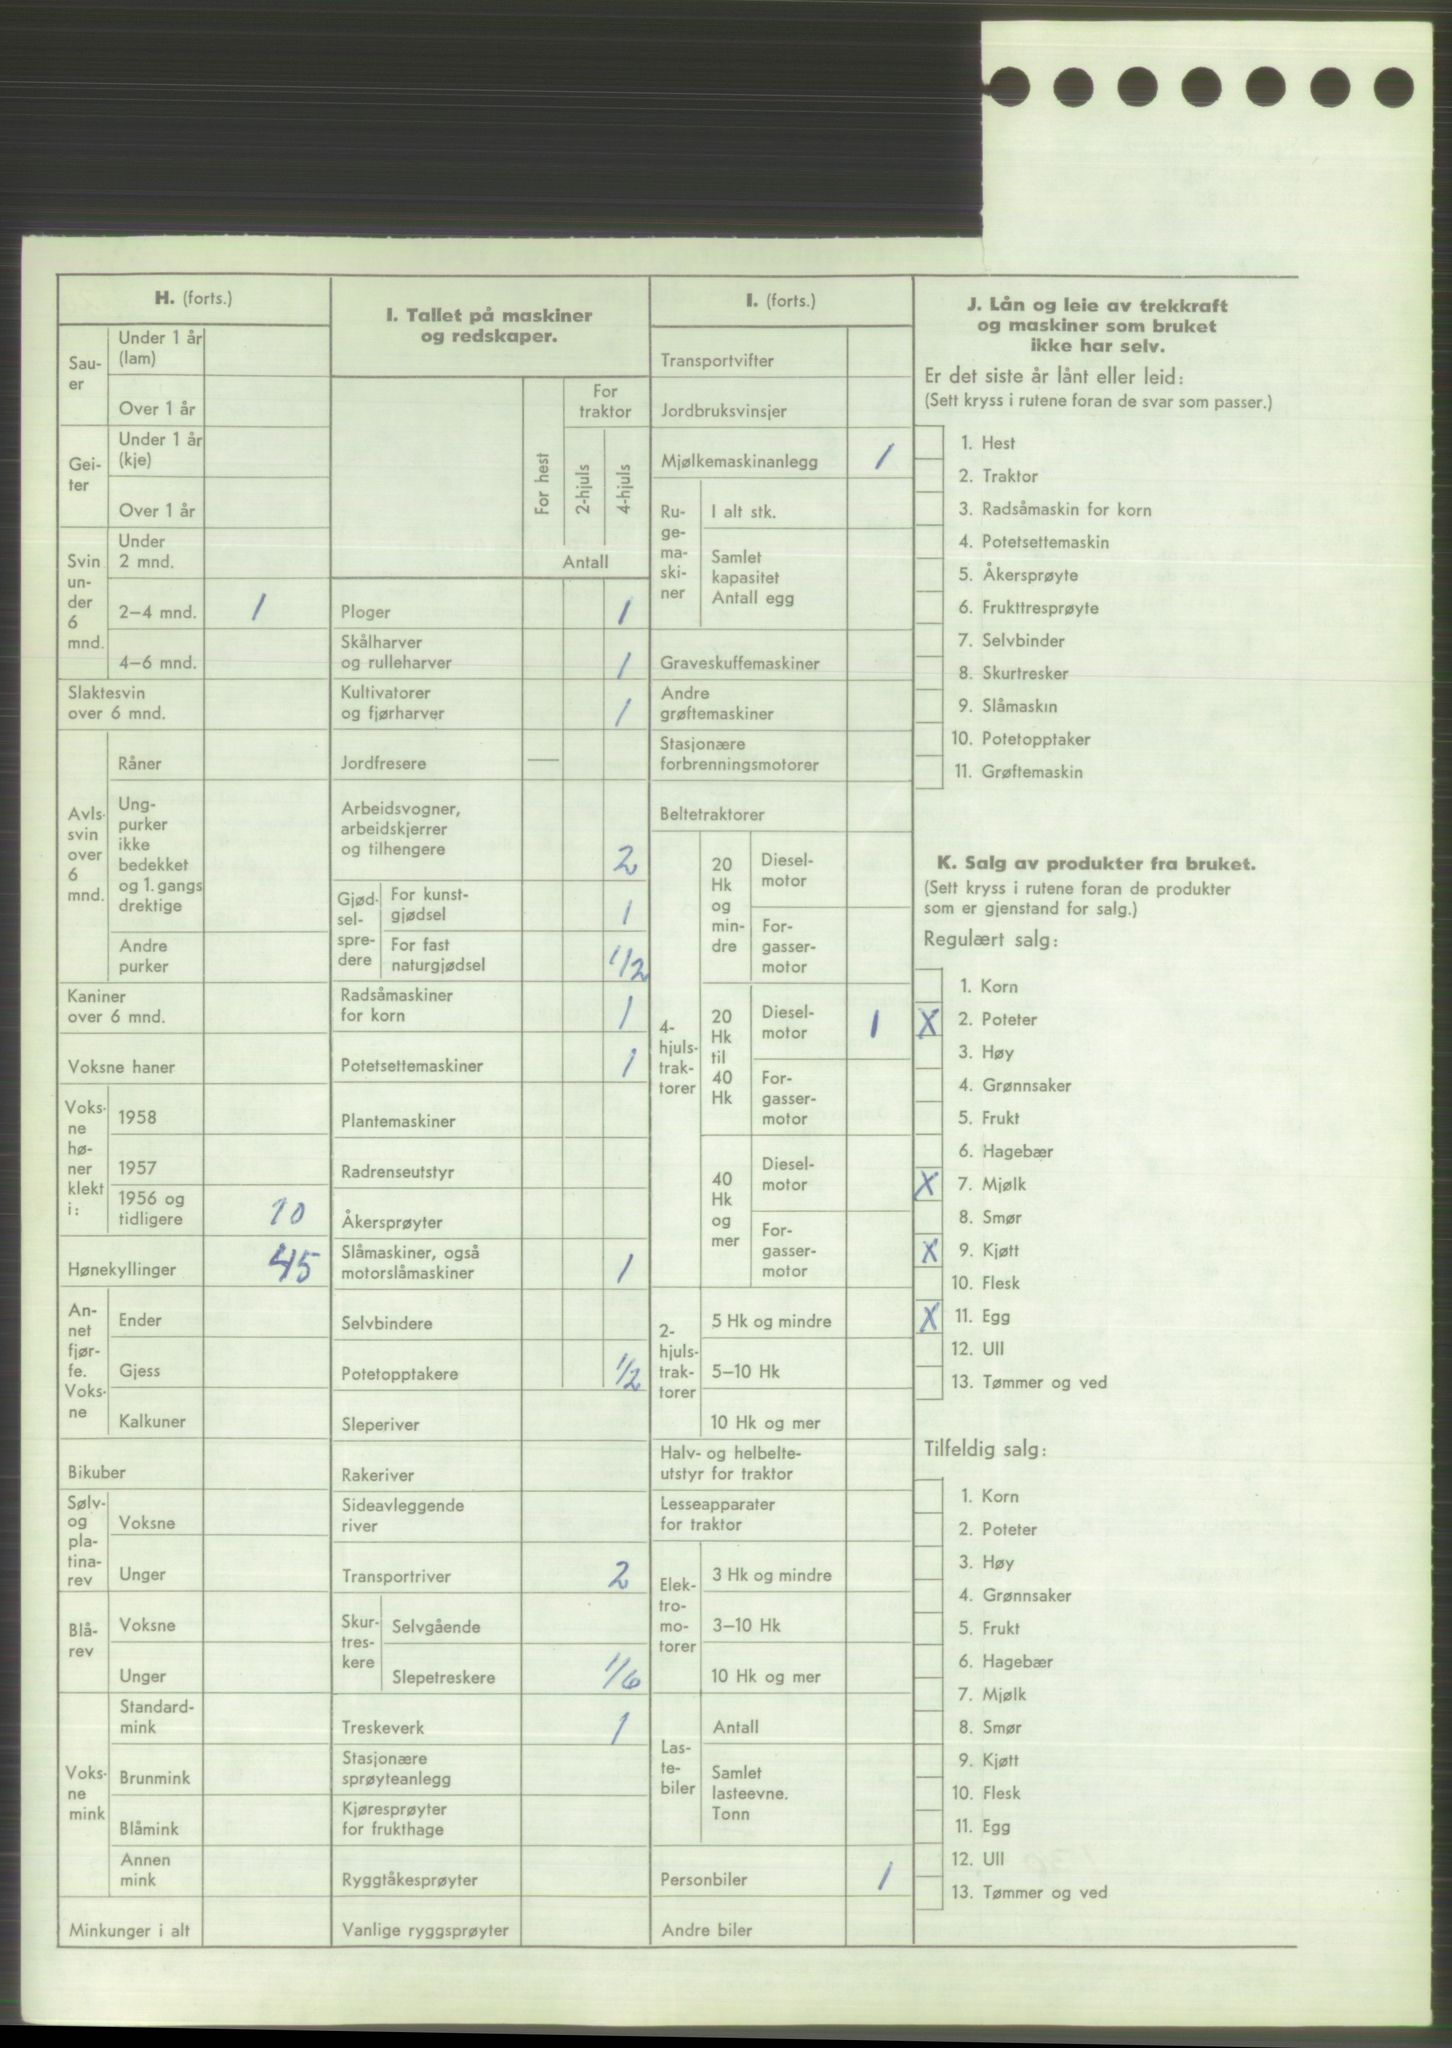 H. (forts.)
Sau-
er
Under 1 år
(lam)
Over 1 år
Gei-
ter
Under 1 år
(kje)
Over 1 år
Svin
un-
der
6
mnd.
Under
2 mnd.
2–4 mnd. 1
4–6 mnd.
Slaktesvin
over 6 mnd.
Avls-
svin
over
6
mnd.
Råner
Ung-
purker
ikke
bedekket
og 1. gangs
drektige
Andre
purker
Kaniner
over 6 mnd.
Voksne haner
Voks-
ne
hø-
ner
klekt
i:
1958
1957
1956 og
tidligere 10
Hønekyllinger 45
An-
net
fjør-
fe.
Voks-
ne
Ender
Gjess
Kalkuner
Bikuber
Sølv-
og
pla-
tina-
rev
Voksne
Unger
Blå-
rev
Voksne
Unger
Voks-
ne
mink
Standard-
mink
Brunmink
Blåmink
Annen
mink
Minkunger i alt
I. Tallet på maskiner
og redskaper.
For hest
For
traktor
2-hjuls
4-hjuls
Antall
Ploger 1
Skålharver
og rulleharver 1
Kultivatorer
og fjørharver 1
Jordfresere —
Arbeidsvogner,
arbeidskjerrer
og tilhengere 2
Gjød-
sel-
spre-
dere
For kunst-
gjødsel 1
For fast
naturgjødsel 1/2
Radsåmaskiner
for korn 1
Potetsettemaskiner 1
Plantemaskiner
Radrenseutstyr
Åkersprøyter
Slåmaskiner, også
motorslåmaskiner 1
Selvbindere
Potetopptakere 1/2
Sleperiver
Rakeriver
Sideavleggende
river
Transportriver 2
Skur-
tres-
kere
Selvgående
Slepetreskere 1/6
Treskeverk 1
Stasjonære
sprøyteanlegg
Kjøresprøyter
for frukthage
Ryggtåkesprøyter
Vanlige ryggsprøyter
I. (forts.)
Transportvifter
Jordbruksvinsjer
Mjølkemaskinanlegg 1
Ru-
ge-
ma-
ski-
ner
I alt stk.
Samlet
kapasitet
Antall egg
Graveskuffemaskiner
Andre
grøftemaskiner
Stasjonære
forbrenningsmotorer
Beltetraktorer
4-
hjuls-
trak-
torer
20
Hk
og
min-
dre
Diesel-
motor
For-
gasser-
motor
20
Hk
til
40
Hk
Diesel-
motor 1
For-
gasser-
motor
40
Hk
og
mer
Diesel-
motor
For-
gasser-
motor
2-
hjuls-
trak-
torer
5 Hk og mindre
5–10 Hk
10 Hk og mer
Halv- og helbelte-
utstyr for traktor
Lesseapparater
for traktor
Elek-
tro-
mo-
torer
3 Hk og mindre
3–10 Hk
10 Hk og mer
Las-
te-
biler
Antall
Samlet
lasteevne.
Tonn
Personbiler 1
Andre biler
J. Lån og leie av trekkraft
og maskiner som bruket
ikke har selv.
Er det siste år lånt eller leid:
(Sett kryss i rutene foran de svar som passer.)
1. Hest
2. Traktor
3. Radsåmaskin for korn
4. Potetsettemaskin
5. Åkersprøyte
6. Frukttresprøyte
7. Selvbinder
8. Skurtresker
9. Slåmaskin
10. Potetopptaker
11. Grøftemaskin
K. Salg av produkter fra bruket.
(Sett kryss i rutene foran de produkter
som er gjenstand for salg.)
Regulært salg:
1. Korn
X 2. Poteter
3. Høy
4. Grønnsaker
5. Frukt
6. Hagebær
X 7. Mjølk
8. Smør
X 9. Kjøtt
10. Flesk
X 11. Egg
12. Ull
13. Tømmer og ved
Tilfeldig salg:
1. Korn
2. Poteter
3. Høy
4. Grønnsaker
5. Frukt
6. Hagebær
7. Mjølk
8. Smør
9. Kjøtt
10. Flesk
11. Egg
12. Ull
13. Tømmer og ved